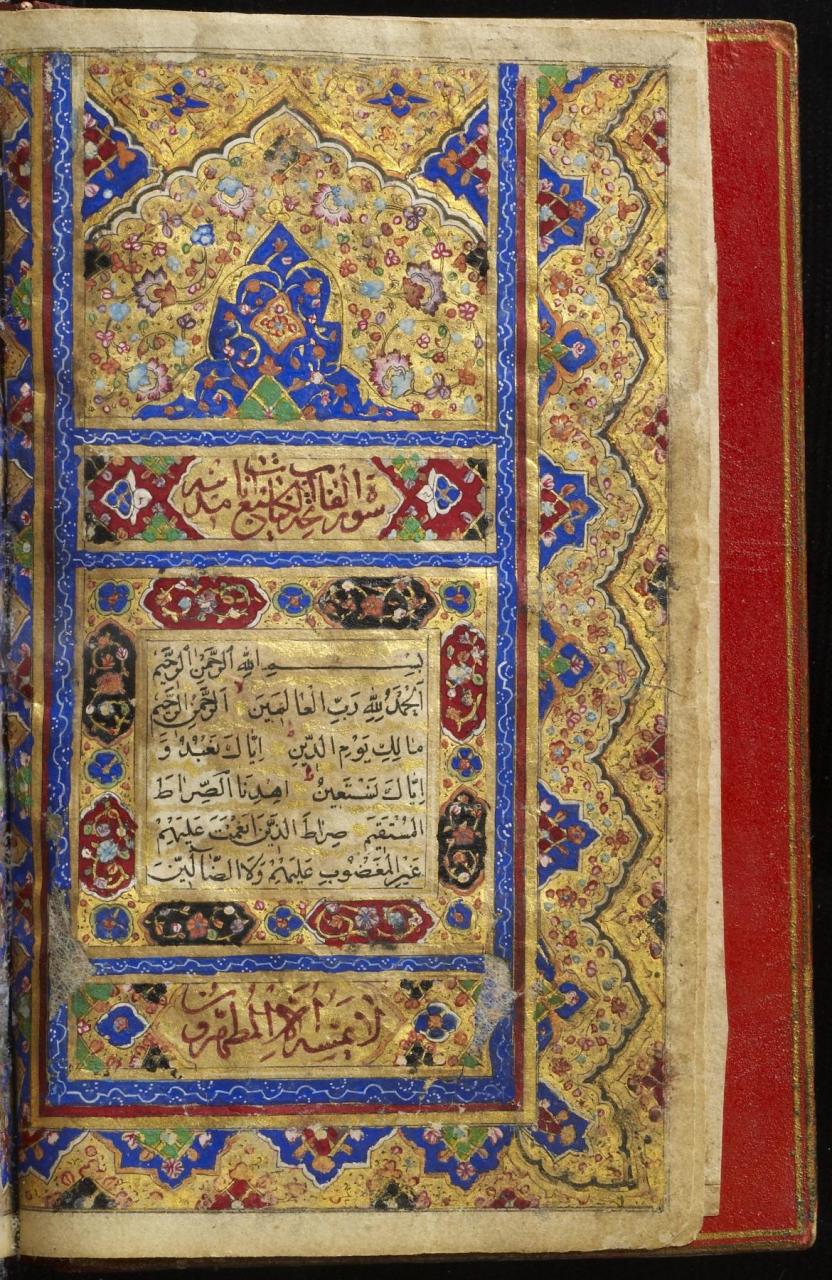 سورة الفاتحة الكتاب سبع آيات
بِسْمِ اللهِ الرَّحْمٰنِ الرَّحِيْمِ
اَلْحَمْدُ لِلّٰهِ رَبِّ الْعَالَمِيْنَ اَلرَّحْمٰنِ الرَّحِيْمِ
مَالِكِ يَوْمِ الدِّيْنِ اِيَّاكَ نَعْبُدُ وَ
اِيَّاكَ نَسْتَعِيْنُ اِهْدِنَا الصِّرَاطَ
الْمُسْتَقِيْمَ صِرَاطَ الَّذِيْنَ اَنْعَمْتَ عَلَيْهِمْ
غَيْرِ الْمَغْضُوْبِ عَلَيْهِمْ وَلَا الضَّالِّيْنَ
لا يمسه الا المطهرون